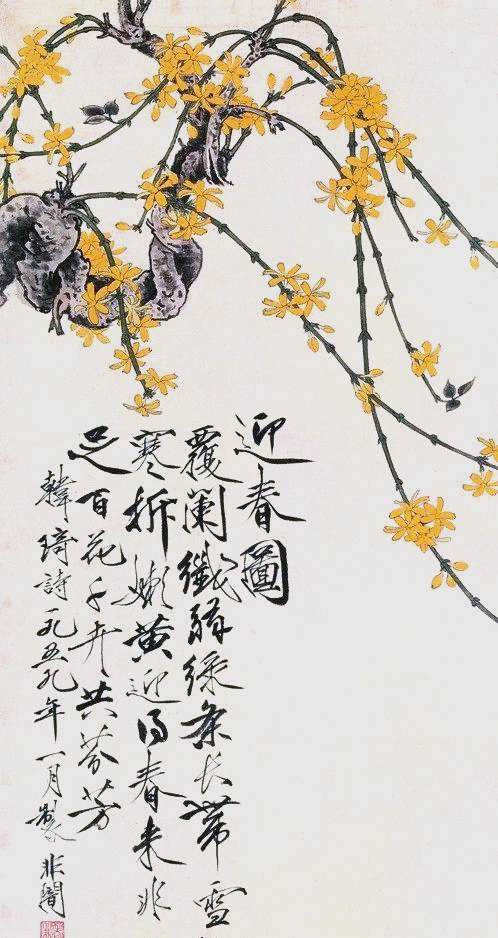 迎春圖
覆闌纖弱綠條長帶雪
寒折嫩黃迎得春來非
足百花千卉共芬芳
韓琦詩一九五九年一月製非闇